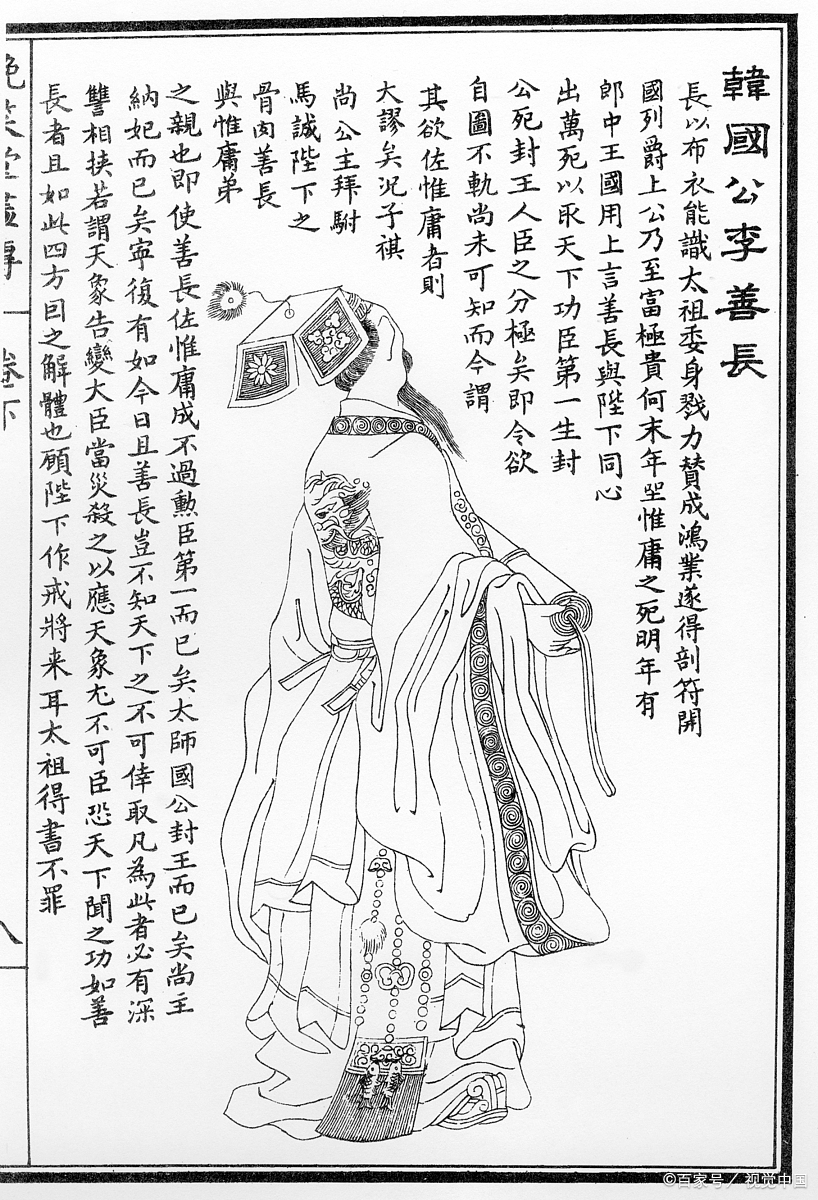 韓國公李善長
長以布衣能識太祖委身戮力賛成鴻業遂得剖符開
國列爵上公乃至富極貴何末年坐惟庸之死明年有
郎中王國用上言善長與陛下同心
出萬死以取天下功臣第一生封
公死封王人臣之分極矣即令欲
自圖不軌尚未可知而今謂
其欲佐惟庸者則
大謬矣况子祺
尚公主拜駙
馬誠陛下之
骨肉善長
與惟庸弟
之親也即使善長佐惟庸成不過勲臣第一而已矣太師國公封王而已矣尚主
納妃而已矣寧復有如今日且善長豈不知天下之不可倖取凡為此者必有深
讐相挾若謂天象告變大臣當災殺之以應天象尤不可臣恐天下聞之功如善
長者且如此四方因之解體也願陛下作戒將来耳太祖得書不罪
晚笑堂畫傳 卷下
八
©百家号／视觉中国